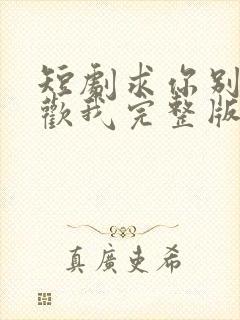 短劇求你別
歡我完整版
真廣吏希